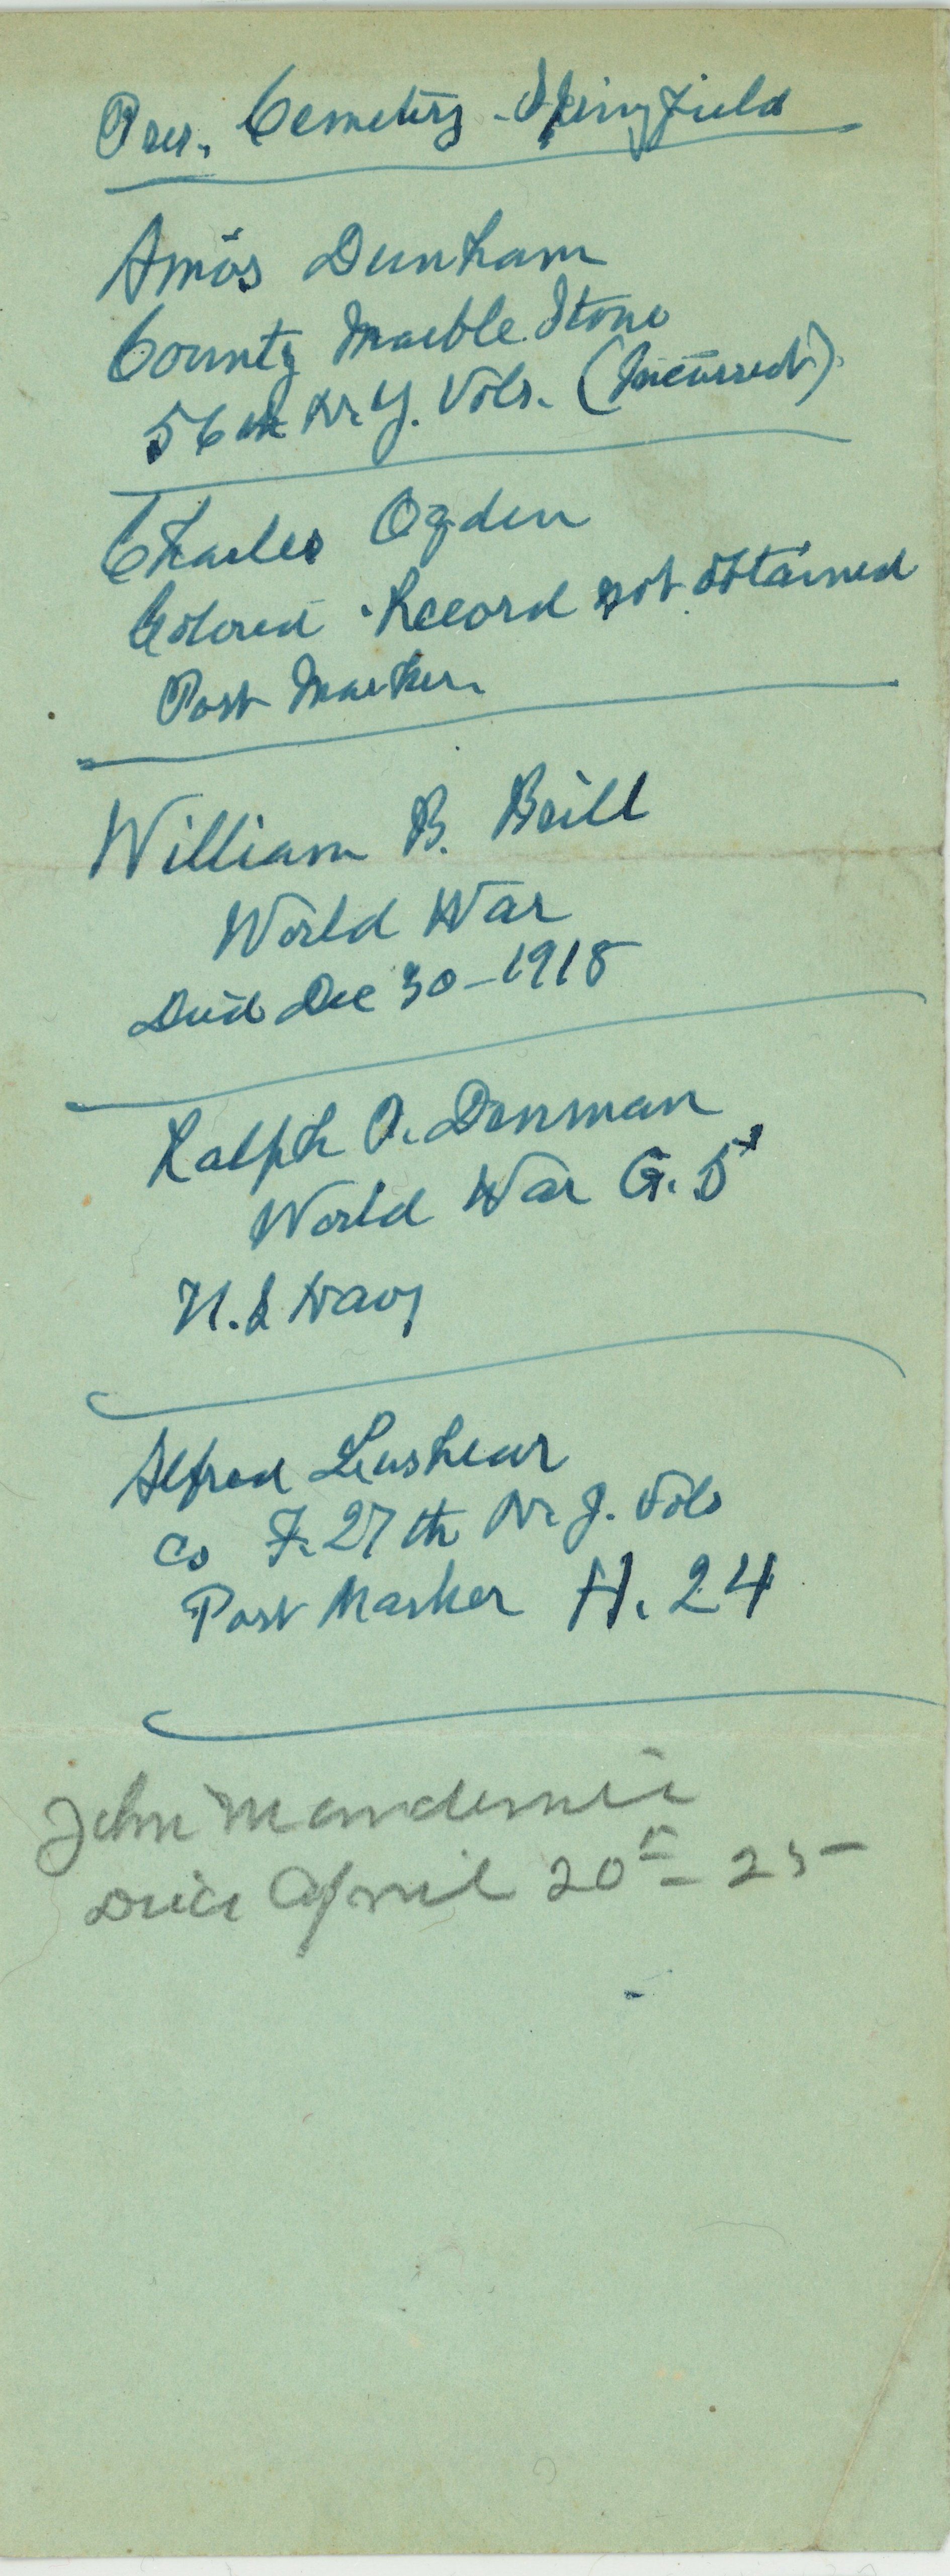 Pres. Cemetery - Springfield
Amos Dunham
County Marble Stone
56th N.Y. Vols. (Incorrect)
Charles Ogden
Colored - Record not obtained
Post Marker
William B. Brill
World War
Died Dec 30 - 1918
Ralph O. Denman
World War G. 5
U.S Navy
Alfred Lushear
Co F. 27th N. J. Vols
Post Marker H. 24
John
Died April 20 - 25